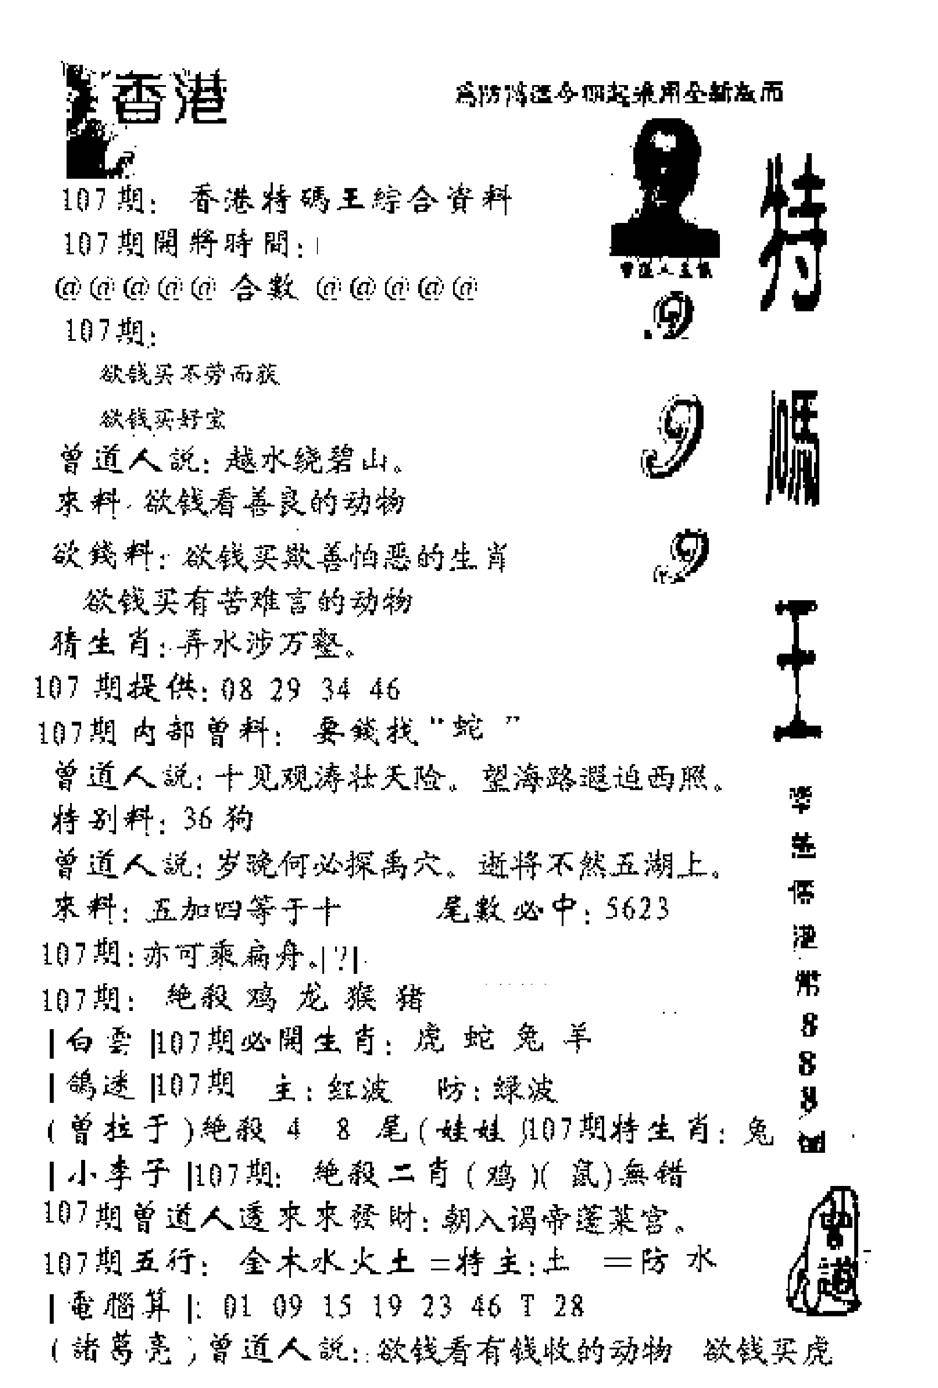 香港
為防鴻運今期起乘用全新版而
107期: 香港特碼王綜合資料
107期開將時間:|
@@@@@ 合數 @@@@@
107期:
欲钱买不劳而获
欲钱买好宝
曾道人説: 越水绕碧山。
來料: 欲钱看善良的动物
欲錢料: 欲钱买欺善怕恶的生肖
欲钱买有苦难言的动物
猜生肖: 弄水涉万壑。
107 期提供: 08 29 34 46
107期内部曾料: 要錢找“蛇 ”
曾道人説: 十见观涛壮天险。望海路遐迫西照。
特别料: 36 狗
曾道人説: 岁晚何必探禹穴。逝将不然五湖上。
來料: 五加四等于十 尾數必中: 5623
107期: 亦可乘扁舟。|?|
107期: 絶殺 鸡 龙 猴 猪
|白雲|107期必開生肖: 虎 蛇 兔 羊
|鴿迷|107期 主: 红波 防: 绿波
(曾拉于)絶殺 4 8 尾(娃娃)107期特生肖: 兔
|小李子|107期: 絶殺二肖(鸡)(鼠)無错
107期曾道人透來來發財: 朝入谒帝蓬莱宫。
107期五行: 金木水火土=特主:土 =防 水
|電腦算|: 01 09 15 19 23 46 T 28
(諸葛亮)曾道人説: 欲钱看有钱收的动物 欲钱买虎
曾道人主機
9
9
9
特
碼
王
888
曾道